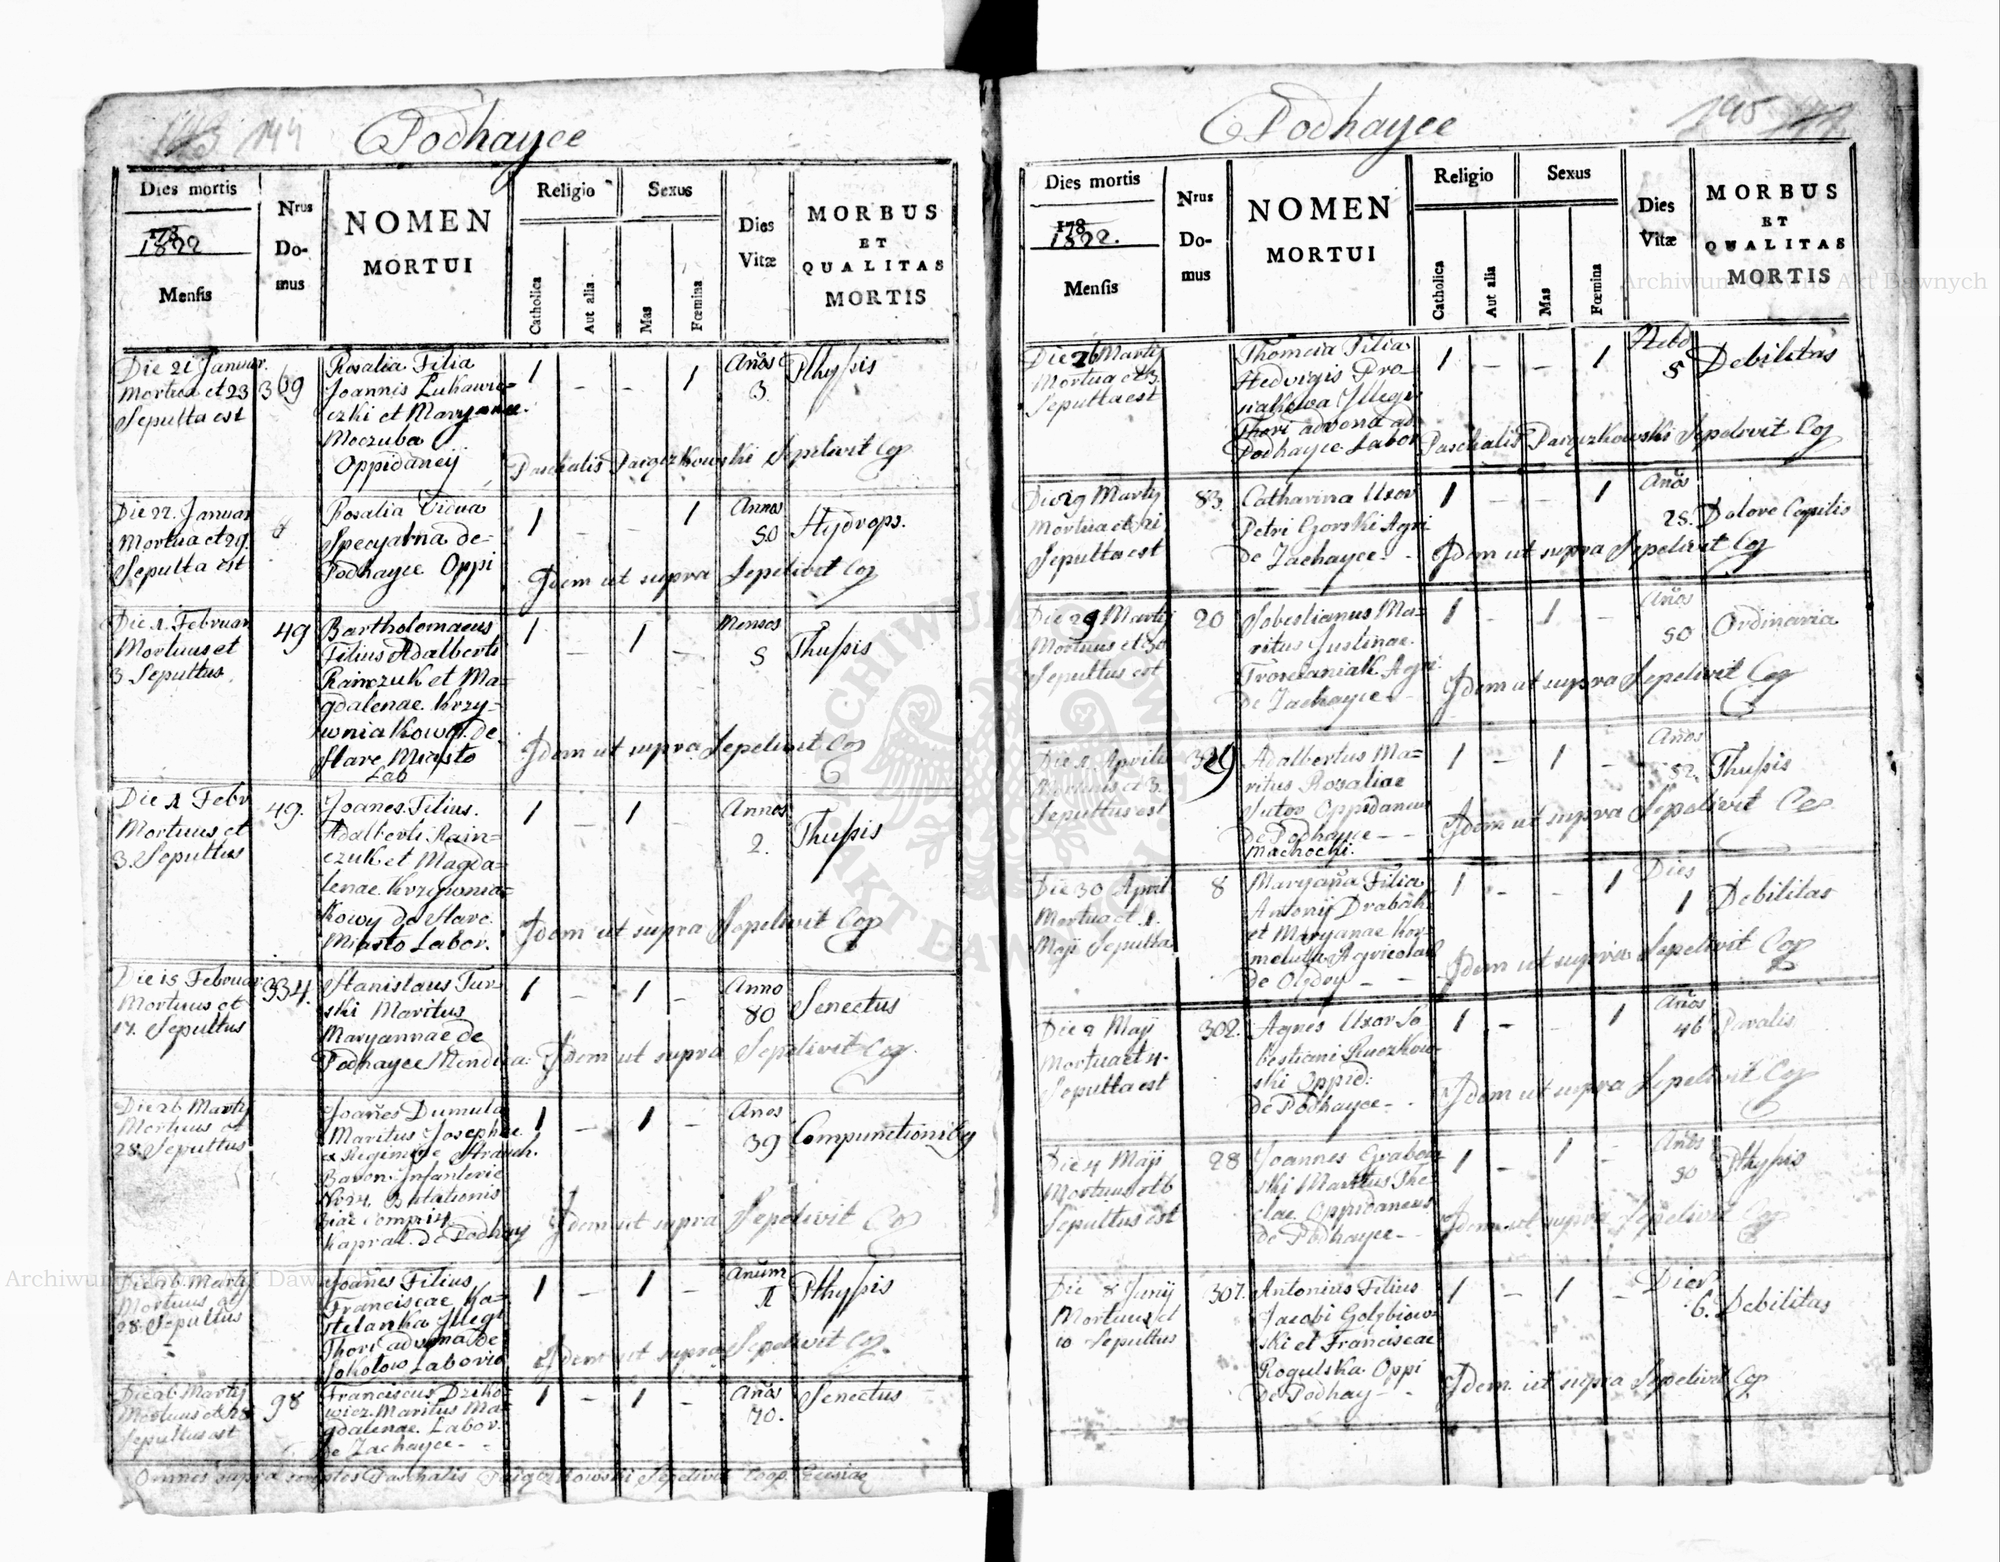 143 144
Podhayce
Dies mortis
178
1822
Mensis
Nrus
Do-
mus
NOMEN
MORTUI
Religio
Sexus
Catholica
Aut alia
Mas
Fœmina
Dies
Vitæ
MORBUS
ET
QUALITAS
MORTIS
Die 21 Januar.
Mortua et 23
Sepulta est
369
Rosalia Filia
Joannis Lukawie=
czki et Maryannae
Moczuba
Oppidaneij
1 - - 1
Años
3.
Pthysis
Paschalis Parczkowski Sepelivit Cop
Die 22. Januar
Mortua et 29.
Sepulta est
Rosalia Vidua
Specyalna de-
Podhayce Oppi
1 - - 1
Annos
50
Hydrops.
Idem ut supra Sepelivit Cop
Die 1. Februar
Mortuus et
3 Sepultus
49
Bartholomaeus
Filius Adalberti
Rainczuk et Ma=
gdalenae Krzy-
wniakowa. de
Stare Miasto
Lab
1 - 1 -
Menses
5
Thussis
Idem ut supra Sepelivit Cop
Die 1 Febr
Mortuus et
3. Sepultus
49.
Joanes Filius.
Adalberti Rain=
czuk et Magda=
lenae Krzywnia=
kowy de Stare
Miasto Labor.
1 - 1 -
Annos
2.
Thussis
Idem ut supra Sepelivit Cop
Die 15 Februar
Mortuus et
17. Sepultus
334.
Stanislaus Tur-
ski Maritus
Maryannae de
Podhayce Mendica:
1 - 1 -
Anno
80
Senectus
Idem ut supra Sepelivit Cop.
Die 26 Martij
Mortuus et
28 Sepultus
Joañes Dumula
Maritus Josephae
ex Regimine Strauch.
Baron Infanterie
Nr 24. Batationis
Kapral. de Podhay
1 - 1 -
Anos
39
Compunctionibg
Idem ut supra Sepelivit Cop
Die 26 Martij
Mortuus et
28. Sepultus
Joañes Filius
Franciscae Ka=
stelanka Illegt
Thori advena de
Sokolow Laborio
1 - 1 -
Anum
1
Pthysis
Idem ut supra Sepelivit Cop.
Die 26 Martij
Mortuus et 28
Sepultus est
98
Franciscus Dziko=
wicz Maritus Ma=
gdalenae Labor.
De Zachayce -
1 - 1 -
Años
70.
Senectus
Omnes supra scriptos Paschalis Parczkowski Sepelivit Coop. Ecclesiae
195
Podhayce
Dies mortis
178
1822.
Mensis
Nrus
Do-
mus
NOMEN
MORTUI
Religio
Sexus
Catholica
Aut alia
Mas
Fœmina
Dies
Vitæ
MORBUS
ET
QUALITAS
MORTIS
Die 26 Martij
Mortua et
Sepulta est
Thomcia Filia
Hedvigis Pro-
Illegi
Thori advena ad
Podhayce Labor
1 - - 1
Hebd
5
Debilitas
Paschalis Parczkowski Sepelivit Cop
Die 29 Martij
Mortua et 31
Sepulta est
83.
Catharina Uxor
Petri Gorski Agri
De Zachayce -
1 - - 1
Años
28.
Dolore Capitis
Idem ut supra Sepelivit Cop
Die 29 Martij
Mortuus et 30
Sepultus est
20
Sobestianus Ma-
ritus Justinae
Agri
De Zachayce -
1 - 1 -
Años
50
Ordinaria
Idem ut supra Sepelivit Cop
Die 1. Aprilis
Mortuus et 3.
Sepultus est
329
Adalbertus Ma=
ritus Rosaliae
Sutor Oppidaneus
De Podhayce - -
Machocki.
1 - 1 -
Años
52.
Thussis
Idem ut supra Sepelivit Cop
Die 30 April
Mortua et 1.
Maji Sepulta
8
Maryaña Filia
Antonij Drabik
et Maryanae Kor-
Agricolae
de
1 - - 1
Dies
1
Debilitas
Idem ut supra Sepelivit Cop
Die 2 Maji
Mortua et 4.
Sepulta est
302.
Agnes Uxor So
bestiani Ruczkow-
ski Oppid:
De Podhayce -
1 - - 1
Años
46
Paralis
Idem ut supra Sepelivit Cop
Die 4 Maji
Mortuus et 6
Sepultus est
28
Joannes Grabow
ski Maritus The
clae Oppidaneus
De Podhayce -
1 - 1 -
Años
50
Pthysis
Idem ut supra Sepelivit Cop
Die 8 Junij
Mortuus et
10 Sepultus
307.
Antonius Filius
Jacobi Golybiow=
ski et Franciscae
Rogulska Oppi
De Podhay -
1 - 1 -
Dies
6.
Debilitas
Idem ut supra Sepelivit Cop
Archiwum Główne Akt Dawnych
ARCHIWUM GŁÓWNE
AKT DAWNYCH
Archiwum Główne Akt Dawnych